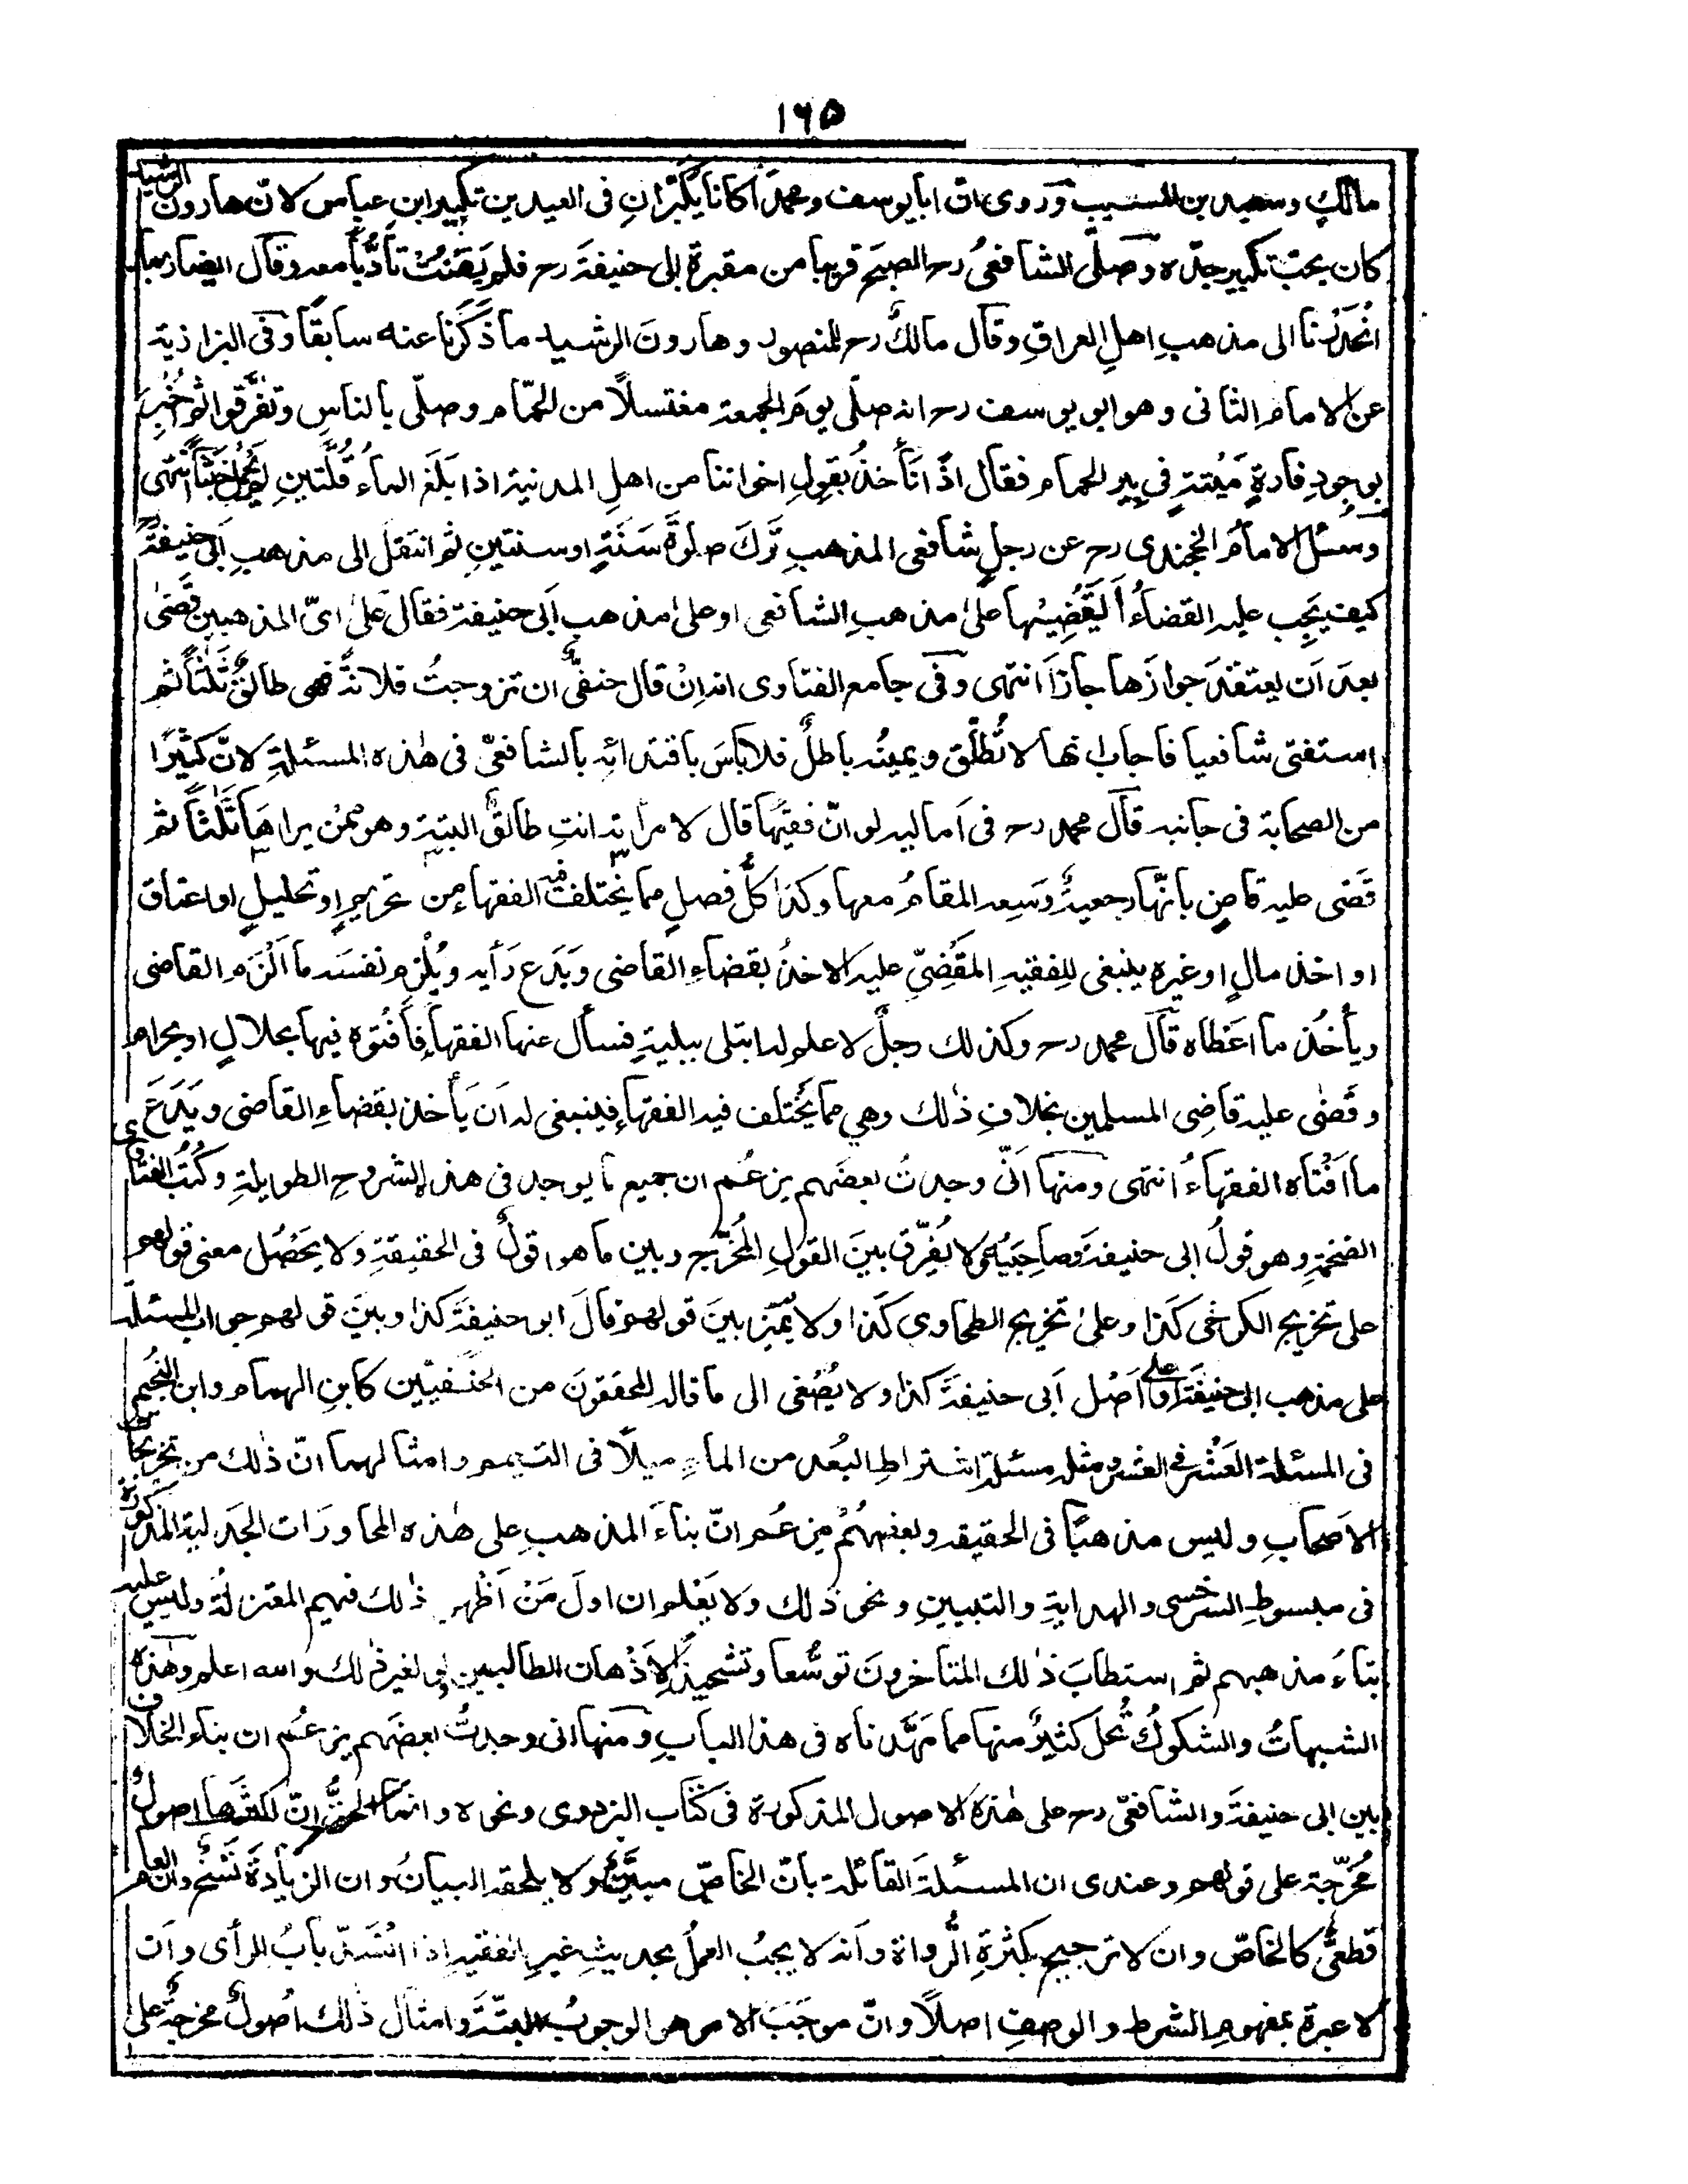 ١٦٥
مالك وسعيد بن المسيب وروى ان ابا يوسف ومحمدًا كانا يكبّران فى العيدين تكبير ابن عباس لانّ هارون الرشيد
كان يحبّ تكبير جدّه وصلّى الشافعىُّ رحـ الصبحَ قريبا من مقبرة ابى حنيفةَ رحـ فلم يَقنُتْ تأدُّبًا معه وقال ايضا ربما
انحدَرْنا الى مذهبِ اهلِ العراقِ وقال مالكٌ رحـ للمنصور وهارونَ الرشيد ما ذَكَرنا عنه سابقًا وفى البزازية
عن الامام الثانى وهو ابو يوسف رحـ انه صلّى يومَ الجمعة مغتسلًا من الحمّام وصلّى بالناسِ وتفرَّقوا ثم اُخبِرَ
بوجودِ فارةٍ مَيْتةٍ فى بيرِ الحمام فقال اذًا نَأخذُ بقولِ اخواننا من اهلِ المدينة اذا بَلَغَ الماءُ قُلَّتينِ لم يَحمِل خَبَثًا انتهى
وسئل الامامُ الخجندى رحـ عن رجلٍ شافعى المذهبِ تَرَكَ صلوةَ سَنَةٍ او سنتينِ ثم انتقلَ الى مذهبِ ابى حنيفةَ رحـ
كيف يَجِب عليه القضاءُ أيَقْضِيْها على مذهبِ الشافعى او على مذهبِ اَبى حنيفة فقال على اىّ المذهبينِ قَضىٰ
بعدَ اَن يعتقدَ جوازَها جازَ انتهى وفى جامع الفتاوى انه اِنْ قال حنفىٌّ ان تزوجتُ فلانةً فهى طالقٌ ثَلٰثًا ثم
استفتى شافعيا فاجاب انها لا تُطَلَّق ويمينُه باطلٌ فلا بأسَ باقتدائه بالشافعىّ فى هٰذه المسئلةِ لانّ كثيرًا
من الصحابة فى جانبه قال محمد رحـ فى اَماليه لو انّ فقيهًا قال لامرأته انتِ طالقٌ البتةَ وهو ممن يراها ثَلٰثًا ثم
قَضى عليه قاضٍ بانّها رجعيةٌ وَسِعه المقامُ معها وكذا كلُّ فصلٍ مما يَختلف فيه الفقهاءِ من تحريمٍ او تحليلٍ او اعتاق
او اخذ مالٍ او غيره ينبغى للِفقيهِ المَقْضِىّ عليه الاخذُ بقضاءِ القاضى ويَدَع رَأيه ويُلْزِم نفسَه ما اَلْزَم القاضى
ويأخُذ ما اَعْطاه قال محمد رحـ وكذلك رجلٌ لا علم له ابتلى ببليةٍ فسأل عنها الفقهاءَ فاَفْتَوه فيها بحلالٍ او بحرام
وقَضٰى عليه قاضِى المسلمين بخلافِ ذٰلك وهي مما يَختلف فيه الفقهاءُ فينبغى له اَن يَأخذ بقضاءِ القاضى ويَدَعَ
ما اَفْتاه الفقهاءُ انتهى ومنها اَنّى وجدتُ بعضَهم يزعُم ان جميع ما يوجد فى هذه الشروحِ الطويلةِ وكُتُبِ الفتاوى
الضخمةِ وهو قولُ ابى حنيفةَ وصاحِبَيْه ولا يُفَرِّق بينَ القولِ المُخَرَّج وبين ما هو قولٌ فى الحقيقةِ ولا يَحَصّل معنى قولهم
على تخريج الكرخى كَذا وعلى تخريج الطحاوى كَذا ولا يُمَيّز بينَ قولهم قالَ ابو حنيفةَ كذا وبينَ قولهم جواب المسئلة
على مذهب ابى حنيفةَ او على اَصْل اَبى حنيفةَ كذا ولا يُصْغى الى ما قاله المحققونَ من الحنفيّين كابنِ الهمام وابن النُجيم
فى المسئلة العَشْر فى العشر ومثله مسئلة اشتراطِ البُعد من الماءِ ميلًا فى التيمم وامثالهما انّ ذٰلك من تخريجات
الاصحابِ وليس مذهبًا فى الحقيقة وبعضهُمْ يزعُم انّ بناءَ المذهبِ على هٰذه المحاورَات الجَدَلية المذكورة
فى مبسوطِ السرخسى والهدايةِ والتبيينِ ونحو ذٰلك ولا يَعْلم ان اولَ مَنْ اَظْهر ذٰلك فيهم المعتزلةُ وليس عليه
بناءُ مذهبهم ثم استطابَ ذٰلك المتاخرونَ توسُّعا وتشحيذًا لاَذْهان الطالبين او لغير ذٰلك والله اعلم وهٰذه
الشبهاتُ والشكوكُ يُحَلّ كثيرٌ منها مما مَهَّدناه فى هذا البابِ ومنها انى وجدتُ بعضَهم يزعُم ان بناء الخلاف
بين ابى حنيفةَ والشافعىّ رحـ على هٰذه الاصول المذكورة فى كتاب البزدوى ونحوه وانما الحقُّ انّ اكثرَها اصولٌ
مُخرّجة على قولهم وعندى ان المسئلةَ القائلة بانّ الخاصّ مبيَّنٌ ولا يلحقه البيانُ وان الزيادةَ نَسْخٌ وان العام
قطعىٌّ كالخاصّ وان لا ترجيح بكثرةِ الرُّواة وانه لا يجبُ العملُ بحديثِ غيرِ الفقيهِ اذا انسَدّ بابُ الرأى وان
لا عبرة بمفهومِ الشرطِ والوصفِ اصلًا وانّ موجَبَ الامرِ هو الوجوبُ البتّةَ وامثال ذٰلك اُصولٌ مخرجةٌ على